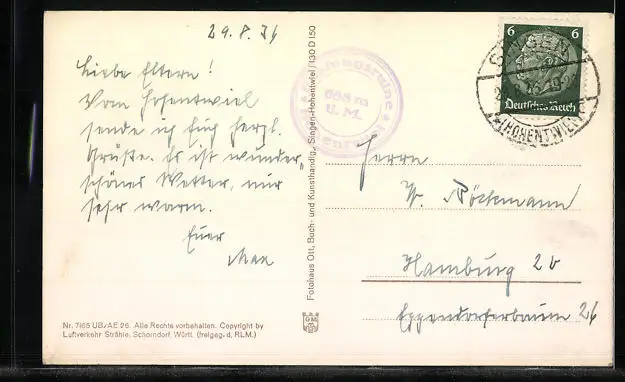 29.8.36
Liebe Eltern!
Vom Hohentwiel
sende ich Euch herzl.
Grüße. Es ist wunder-
schönes Wetter, nur
sehr warm.
Euer
Max
Nr. 7165 UB/AE 26. Alle Rechte vorbehalten. Copyright by
Luftverkehr Strähle, Schorndorf, Württ. (freigeg. d. RLM.)
Fotohaus Ott, Buch- und Kunsthandlg., Singen-Hohentwiel / 130 D 150
Festungsruine
698 m
ü. M.
Hohentwiel
6 6
Deutsches Reich
SINGEN
(HOHENTWIEL)
Herrn
W. Röckmann
Hamburg 20
Eppendorferbaum 26